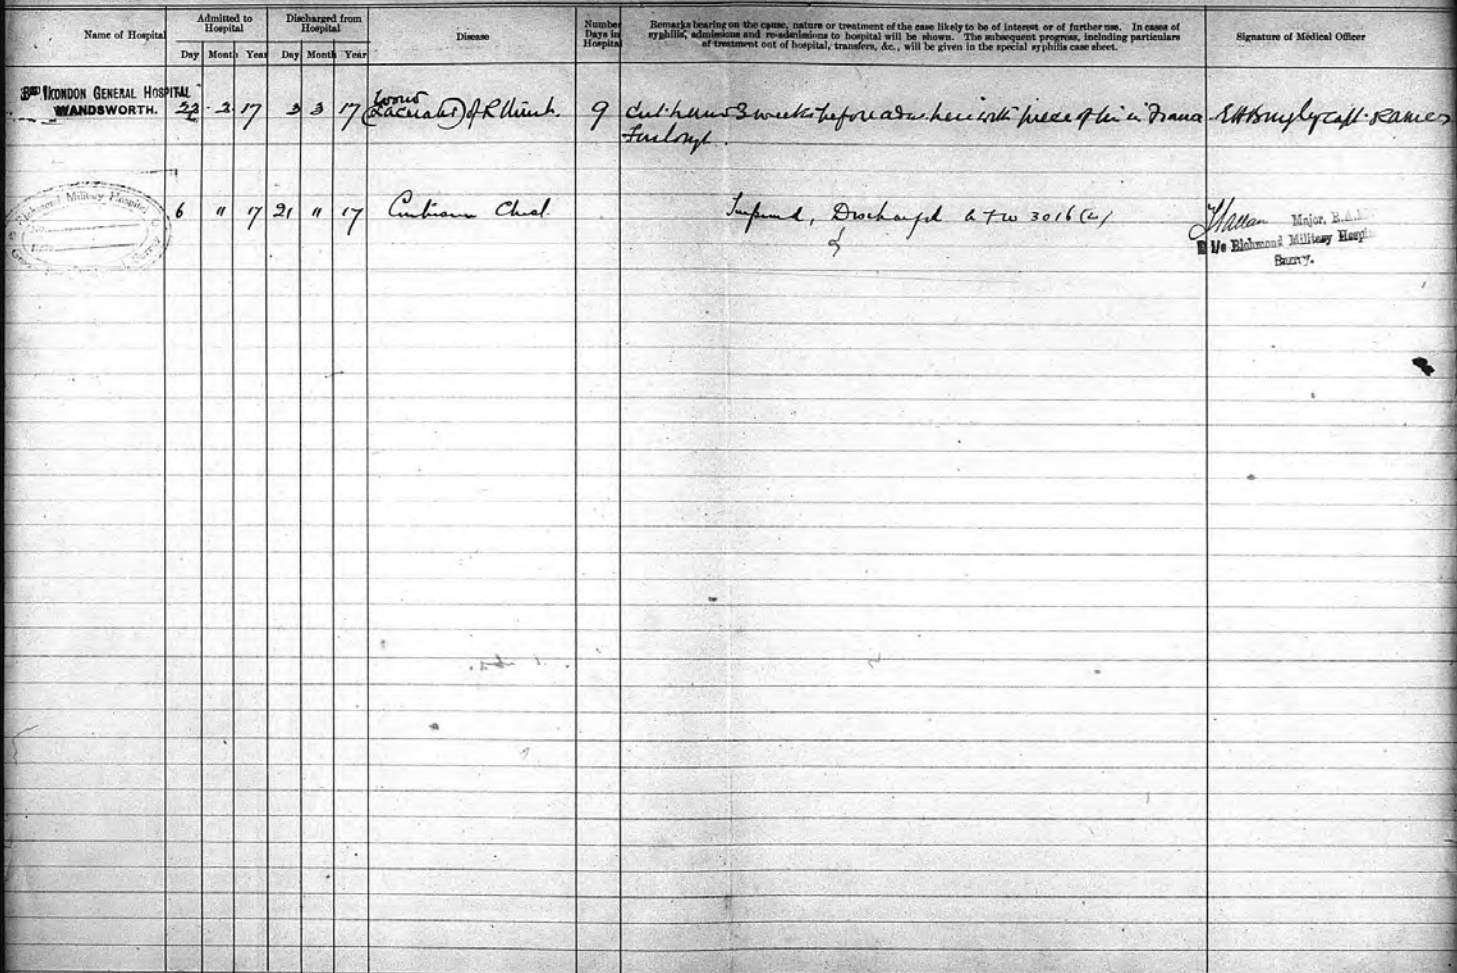 Name of Hospital
Admitted to Hospital
Day Month Year
Discharged from Hospital
Day Month Year
Disease
Number Days in Hospital
Remarks bearing on the cause, nature or treatment of the case likely to be of interest or of further use. In cases of
syphilis, admissions and re-admissions to hospital will be shown. The subsequent progress, including particulars
of treatment out of hospital, transfers, &c., will be given in the special syphilis case sheet.
Signature of Medical Officer
3RD LONDON GENERAL HOSPITAL
WANDSWORTH.
2 17 3 3 17 Wound (Lacerated) of R 9 Cut 3 weeks before adm. here with piece of tin in
Furlough. Capt. RAMC
Richmond Military Hospital
6 " 17 21 " 17 Discharged 3016 Major, R.A.M.
i/c Richmond Military Hospi
Surrey.